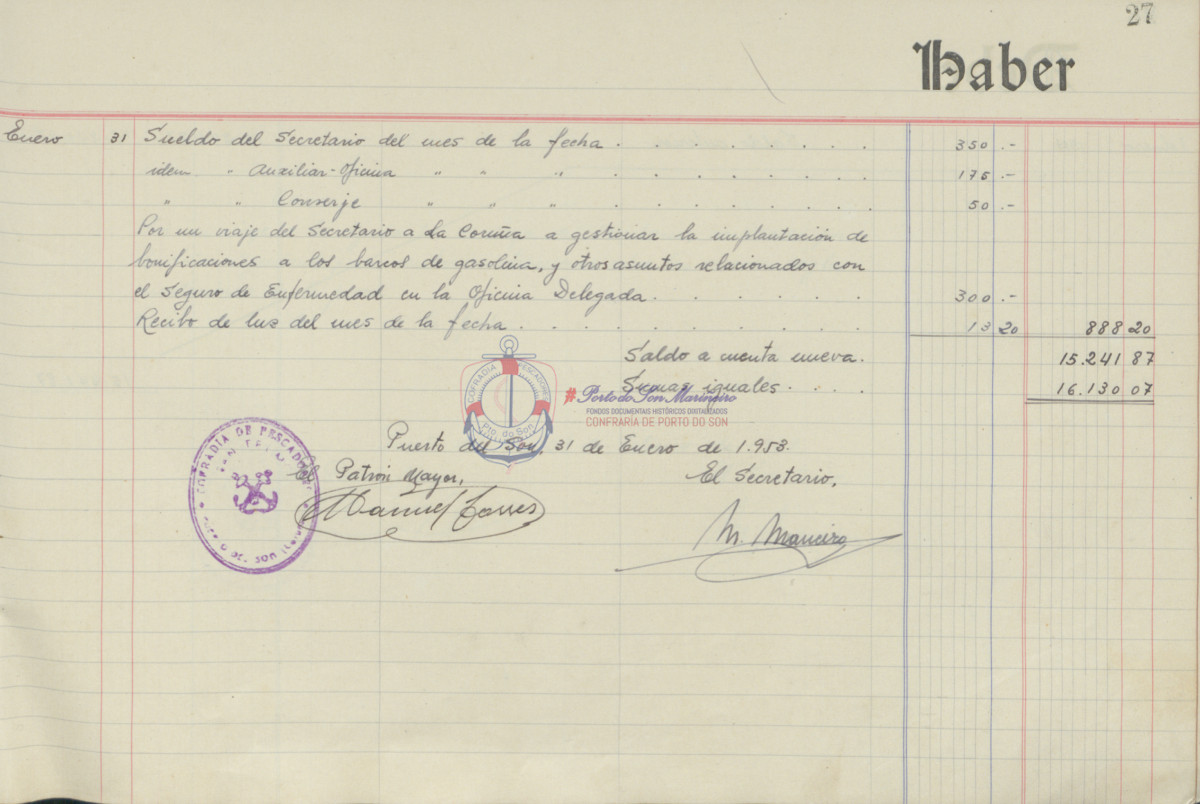 27
Haber
Enero 31 Sueldo del Secretario del mes de la fecha . . . . . . . 350 .-
idem " Auxiliar-Oficina " " " . . . . . . . 175 .-
" " Conserje " " " . . . . . . . 50 .-
Por un viaje del Secretario a La Coruña a gestionar la implantación de
bonificaciones a los barcos de gasolina, y otros asuntos relacionados con
el Seguro de Enfermedad en la Oficina Delegada . . . . . . 300 .-
Recibo de luz del mes de la fecha . . . . . . . 13 20 888 20
Saldo a cuenta nueva. 15.241 87
Sumas iguales . . . . 16.130 07
COFRADIA PESCADORES
Pto. do Son
#Porto do Son Mariñeiro
FONDOS DOCUMENTAIS HISTÓRICOS DIXITALIZADOS
CONFRARÍA DE PORTO DO SON
Puerto del Son, 31 de Enero de 1.953.
El Patrón Mayor, El Secretario,
Manuel Torres
M. Maneiro
COFRADIA DE PESCADORES
DEL SON